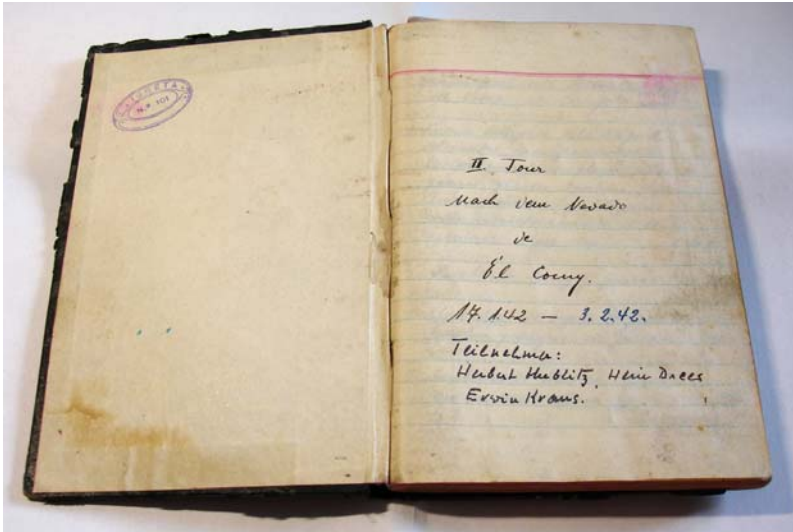 N.º 101
II. Tour
Nach dem Nevado
de
El Cocuy.
17.1.42 — 3.2.42.
Teilnehmer:
Herbert Hublitz, Heini Drees
Erwin Kraus.